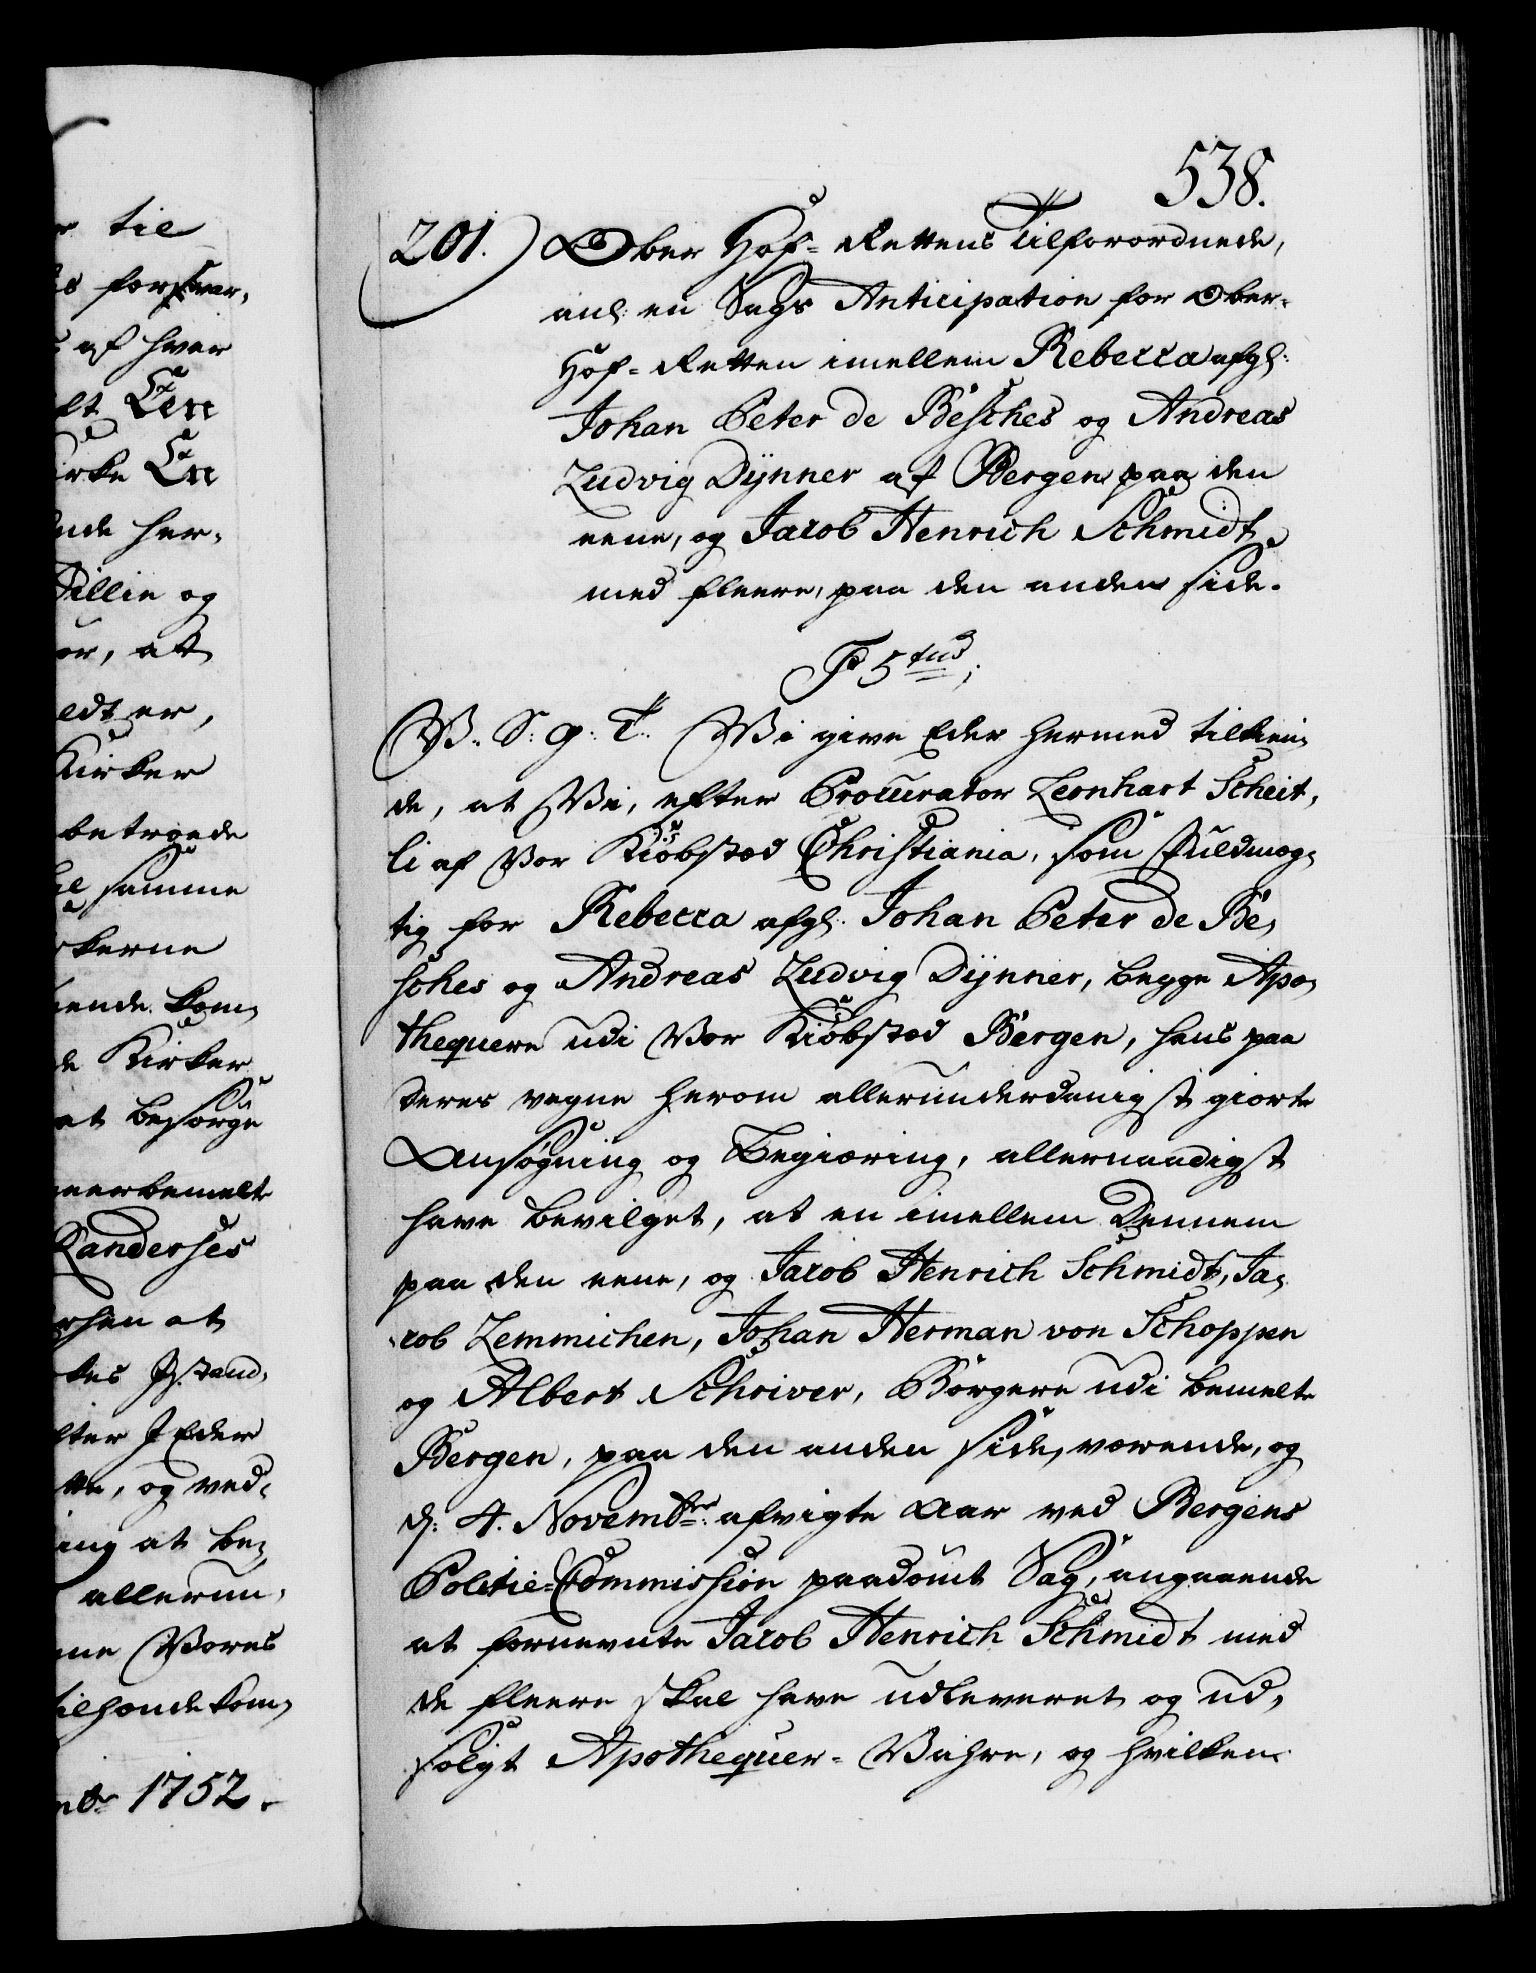 538.
201. Ober Hof-Rettens Tilforordnede,
anl: en Sags Anticipation for Ober-
Hof-Retten imellem Rebecca afgl:
Johan Peter de Besches og Andreas
Ludvig Dÿnner af Bergen paa den
eene, og Jacob Henrich Schmidt
med fleere, paa den anden side.
F 5tus
V. S. G. T. Vi give Eder hermed tilkien,
de, at Vi, efter Procurator Leonhart Scheit,
li af Vor Kiöbstæd Christiania, som Fuldmæg,
tig for Rebecca afgl: Johan Peter de Be,
sches og Andreas Ludvig Dÿnner, begge Apo,
thequere udi Vor Kiöbstæd Bergen, hans paa
deres vegne herom allerunderdanigst giorte
Ansøgning og Begiæring, allernaadigst
have bevilget, at en imellem Dennem
paa den eene, og Jacob Henrich Schmidt, Ja,
cob Lemmichen, Johan Herman von Schoppen
og Albert Schriver, Borgere udi bemelte
Bergen, paa den anden side, værende, og
d: 4. Novembr: afvigte Aar ved Bergens
Politie-Commission paadömt Sag, angaaende
at fornevnte Jacob Henrich Schmidt med
de fleere skal have udleveret og ud,
solgt Apothequer-Vahre, og hvilken
til
forsvar,
af hver
her,
og
at
er,
Kirker
betroede
samme
kom,
Kirker
at besörge
bemelte
Randersis
at
Eder
og ved,
at be,
allerun,
Vores
tilhondekom,
1752.